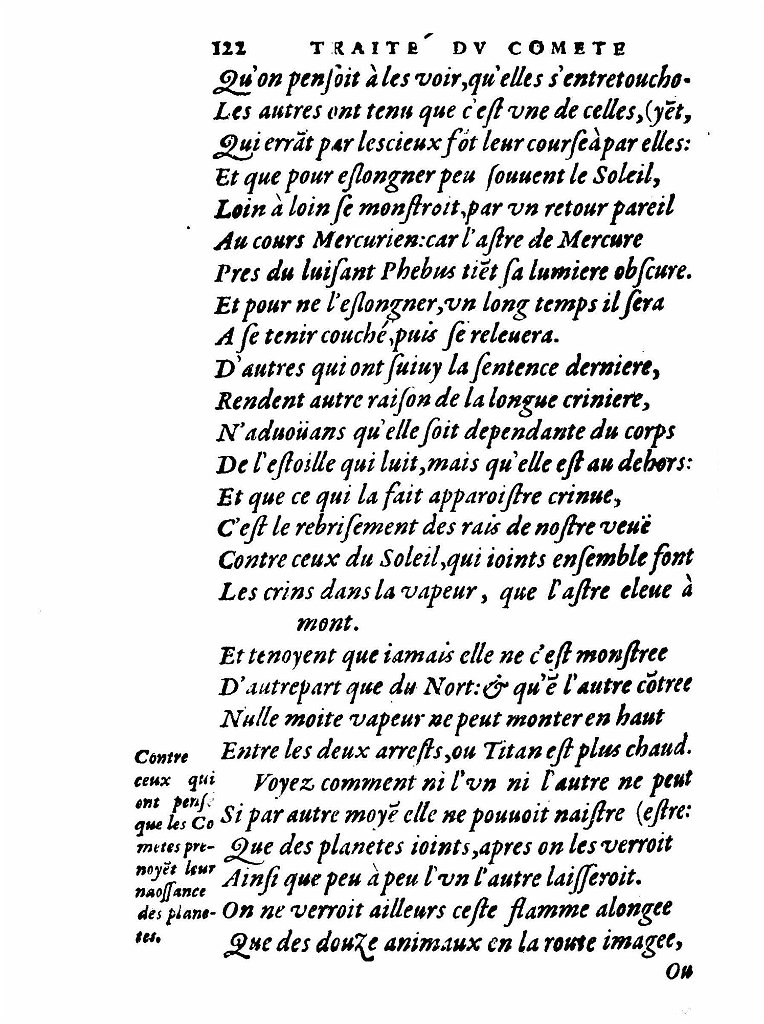 122 TRAITE´ DV COMETE
Qu'on penſoit à les voir, qu'elles s'entretoucho-
Les autres ont tenu que c'eſt vne de celles, (yẽt,
Qui errãt par lescieux fõt leur courſe à par elles:
Et que pour eſlongner peu ſouuent le Soleil,
Loin à loin ſe monſtroit, par vn retour pareil
Au cours Mercurien: car l'aſtre de Mercure
Pres du luiſant Phebus tiẽt ſa lumiere obſcure.
Et pour ne l'eſlongner, vn long temps il ſera
A ſe tenir couché, puis ſe releuera.
D'autres qui ont ſuiuy la ſentence derniere,
Rendent autre raiſon de la longue criniere,
N'aduoüans qu'elle ſoit dependante du corps
De l'eſtoille qui luit, mais qu'elle eſt au dehors:
Et que ce qui la fait apparoiſtre crinue,
C'eſt le rebriſement des rais de noſtre veuë
Contre ceux du Soleil, qui ioints enſemble font
Les crins dans la vapeur, que l'aſtre eleue à
mont.
Et tenoyent que iamais elle ne c'eſt monſtree
D'autrepart que du Nort: & qu'ẽ l'autre cõtree
Nulle moite vapeur ne peut monter en haut
Entre les deux arreſts, ou Titan eſt plus chaud.
Voyez comment ni l'vn ni l'autre ne peut
Si par autre moyẽ elle ne pouuoit naiſtre (eſtre:
Que des planetes ioints, apres on les verroit
Ainſi que peu à peu l'vn l'autre laiſſeroit.
On ne verroit ailleurs ceſte flamme alongee
Que des douze animaux en la route imagee,
Ou
Contre
ceux qui
ont penſ
que les Co
metes pre-
noyẽt leur
naoſſance
des plane-
tes.